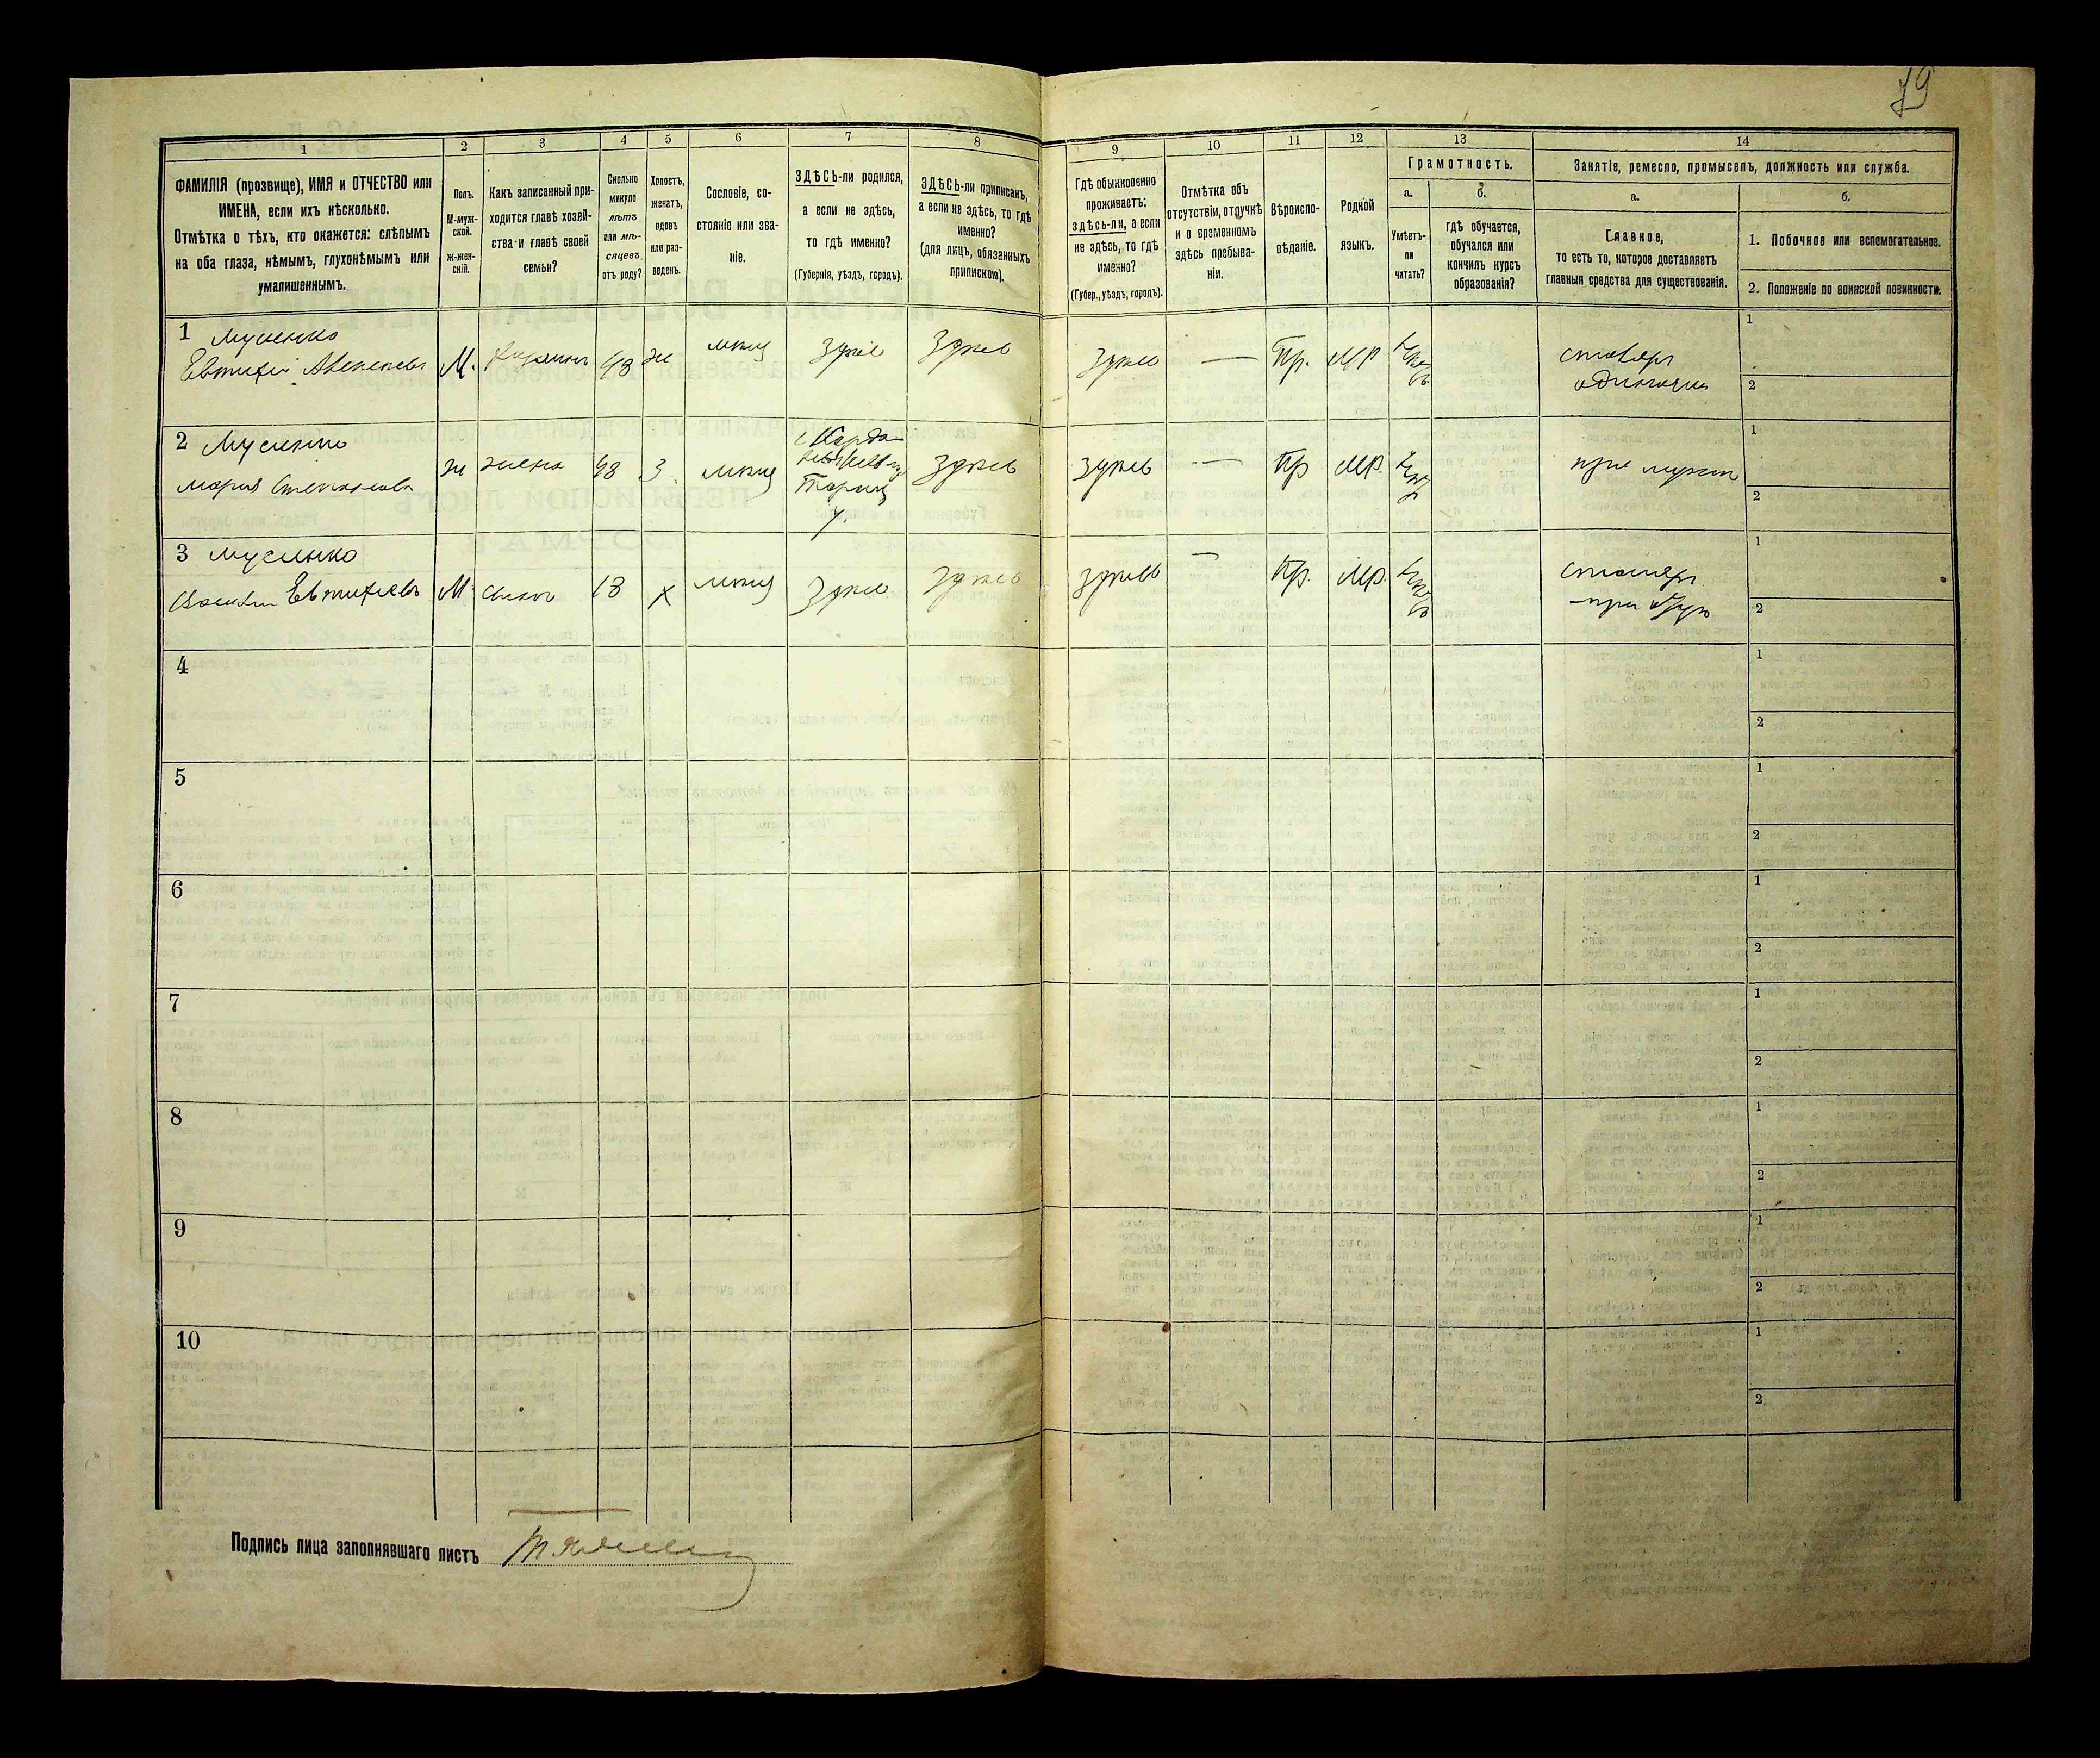 79
1
2
3
4
5
6
7
8
9
10
11
12
13
14
ФАМИЛІЯ (прозвище), ИМЯ и ОТЧЕСТВО или
ИМЕНА, если ихъ нѣсколько.
Отмѣтка о тѣхъ, кто окажется: слѣпымъ
на оба глаза, нѣмымъ, глухонѣмымъ или
умалишеннымъ.
Полъ.
М-муж-
ской.
Ж-жен-
скій.
Какъ записанный при-
ходится главѣ хозяй-
ства и главѣ своей
семьи?
Сколько
минуло
лѣтъ
или мѣ-
сяцевъ
отъ роду?
Холостъ,
женатъ,
вдовъ
или раз-
веденъ.
Сословіе, со-
стояніе или зва-
ніе.
ЗДѢСЬ-ли родился,
а если не здѣсь,
то гдѣ именно?
(Губернія, уѣздъ, городъ).
ЗДѢСЬ-ли приписанъ,
а если не здѣсь, то гдѣ
именно?
(для лицъ, обязанныхъ
припискою).
Гдѣ обыкновенно
проживаетъ:
здѣсь-ли, а если
не здѣсь, то гдѣ
именно?
(Губер., уѣздъ, городъ).
Отмѣтка объ
отсутствіи, отлучкѣ
и о временномъ
здѣсь пребыва-
ніи.
Вѣроиспо-
вѣданіе.
Родной
языкъ.
Грамотность.
а.
б.
Умѣетъ-
ли
читать?
гдѣ обучается,
обучался или
кончилъ курсъ
образованія?
Занятіе, ремесло, промыселъ, должность или служба.
а.
б.
Главное,
то есть то, которое доставляетъ
главныя средства для существованія.
1. Побочное или вспомогательное.
2. Положеніе по воинской повинности.
1 Мусиенко
Евтихій
М.
хозяинъ
48
ж
мѣщ
здѣсь
здѣсь
здѣсь
—
Пр.
МР
столяръ
одиночка
1
2
2 Мусиенко
Мария Степановна
ж
жена
48
З.
мѣщ
здѣсь
здѣсь
—
Пр
МР.
при мужѣ
1
2
3 Мусиенко
Евтихіевъ
М
сынъ
18
х
мѣщ
здѣсь
здѣсь
здѣсь
—
Пр.
МР.
столяръ
при отцѣ
1
2
4
1
2
5
1
2
6
1
2
7
1
2
8
1
2
9
1
2
10
1
2
Подпись лица заполнявшаго листъ